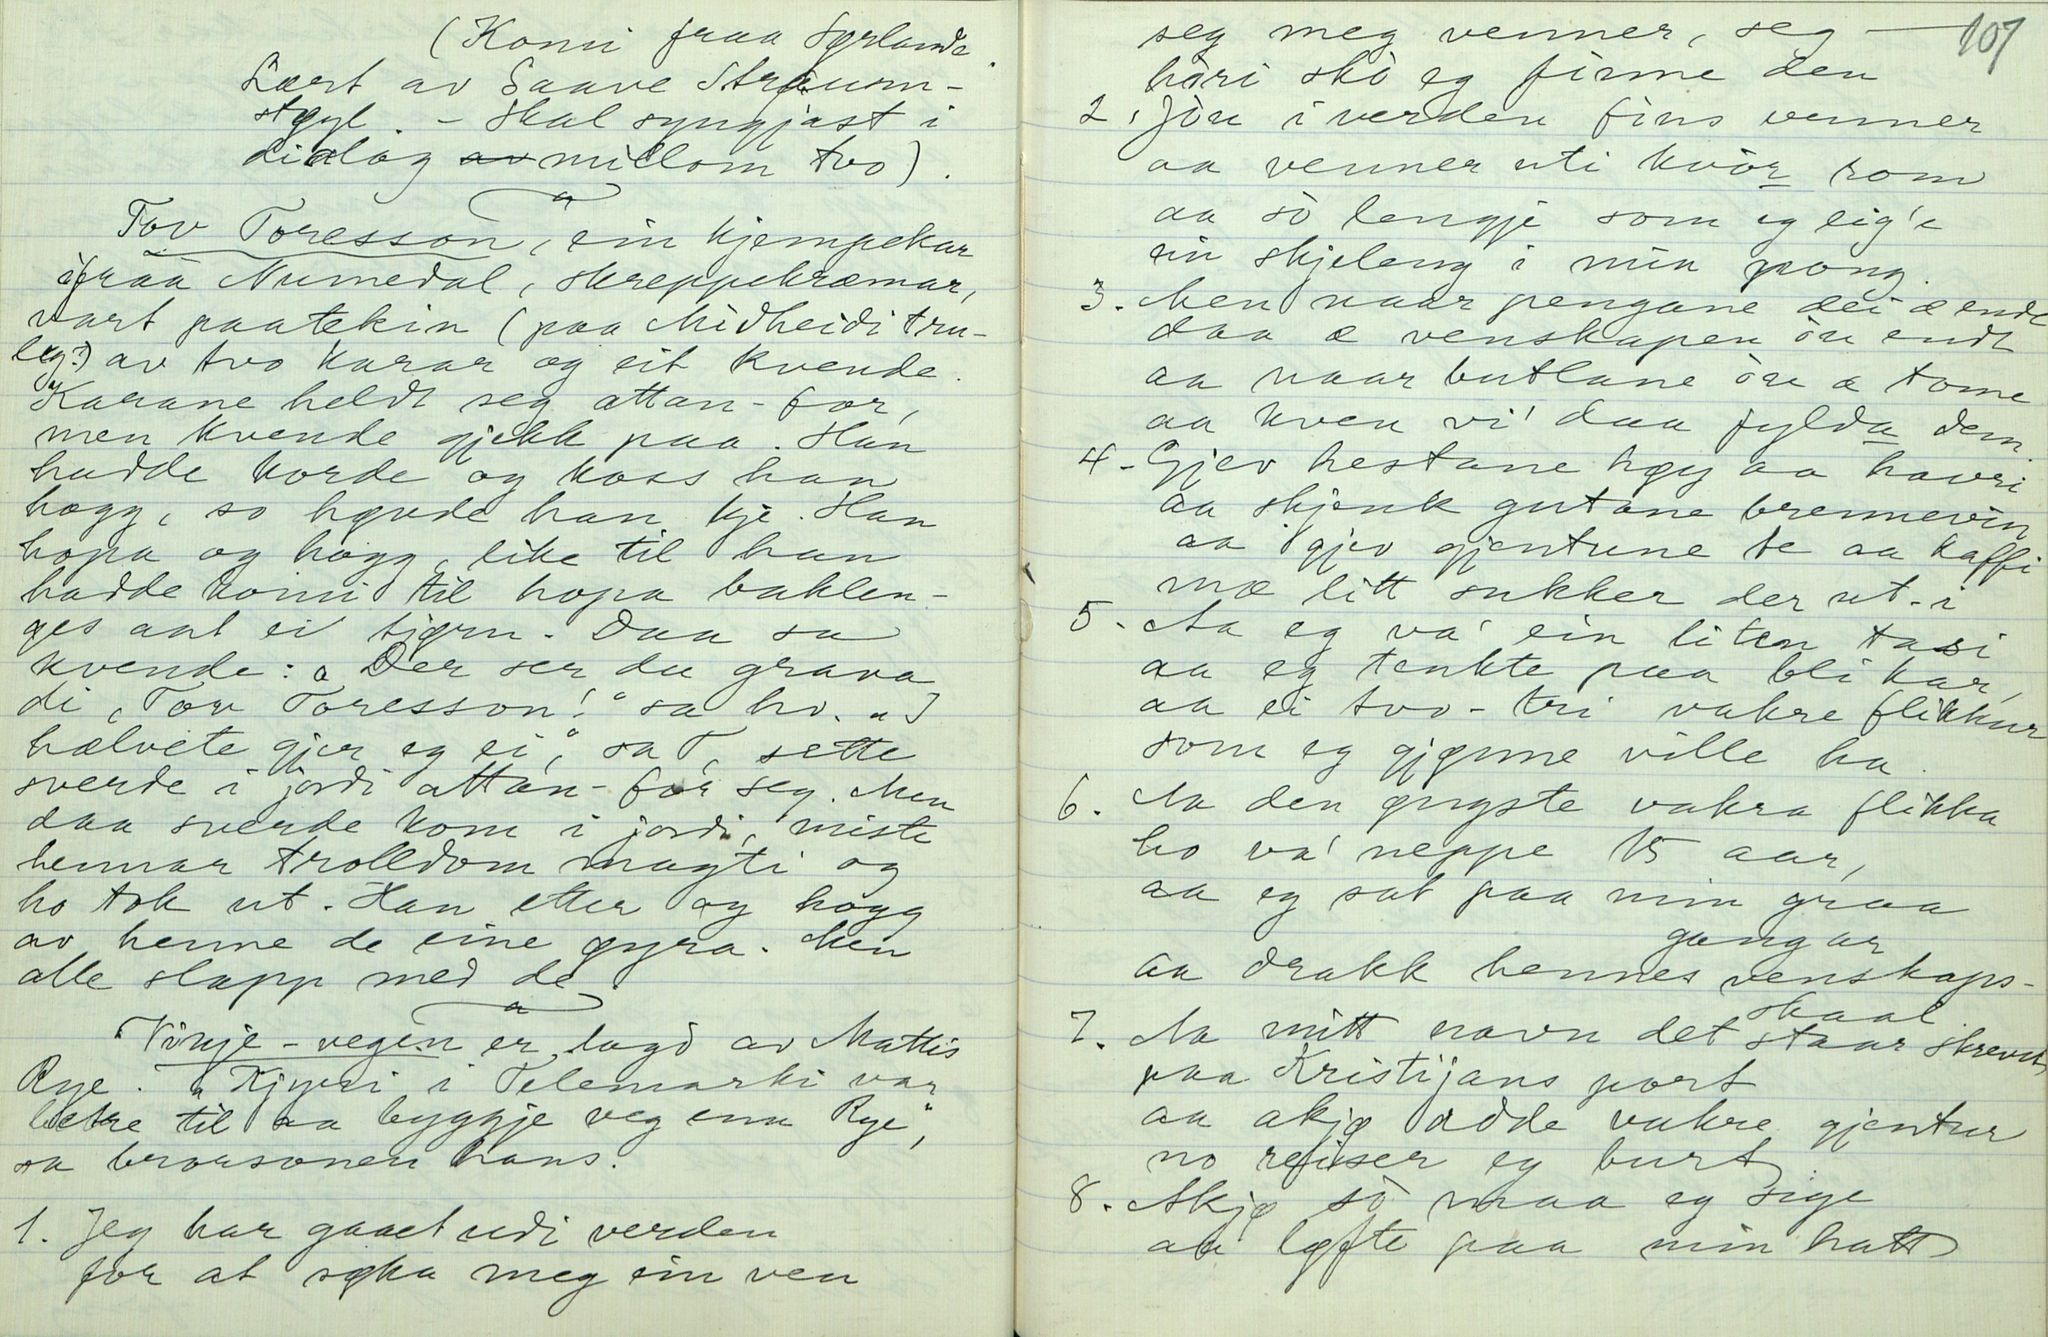 (Komi fraa Sørlande
Lært av Gaave Straum-
støyl. - Skal syngjast i
dialog av millom tvo).
Tov Toresson, ein kjempekar
ifraa Numedal, skreppekræmar,
vart paatekin (paa Midheidi tru-
leg?) av tvo karar og eit kvende.
Karane heldt seg attan-for,
men kvende gjekk paa. Han
hadde korde og koss han
hogg, so høvde han kje. Han
hopa og hogg, like til han
hadde komi til hopa baklen-
ges aat ei tjørn. Daa sa
kvende: "Der ser du grava
di, Tov Toresson!" sa ho. "I
hælvete gjer eg ei", sa T, sette
sverde i jordi attan-for seg. Men
daa sverde kom i jordi, miste
hennar trolldom magti og
ho tok ut. Han etter og hogg
av henne de eine øyra. Men
alle slapp med de.
Vinje-vegen er lagd av Mattis
Rye. "Kjyri i Telemarki var
betre til aa byggje veg enn Rye",
sa brorsonen hans.
1. Jeg har gaaet udi verden
for at søka meg ein ven
107
seg meg venner, seg
hòri skò eg finne den
2. Jòu i verden fins venner
aa venner uti kvòr rom
aa sò lengje som eg eig'e
ein skjeleng i min pong.
3. Men naar pengane dei æ ende
daa æ venskapen òu endt
aa naar butlane òu æ tome
aa kven vi' daa fylda dem.
4. Gjev hestane høy aa havri
aa skjenk gutane brennevin
aa gjev gjentune te aa kaffi
mæ litt sukker der ut-i
5. Aa eg va' ein liten tasi
aa eg tenkte paa bli kar,
aa ei tvo-tri vakre flikkur
som eg gjønne ville ha.
6. Aa den øngste vakra flikka
ho va' neppe 15 aar,
aa eg sat paa min graa
gangar
aa drakk hennes venskaps-
skaal
7. Aa mitt navn det staar skrevet
paa Kristijans port
aa akjø adde vakre gjentur
no reiser eg burt.
8. Akjø sò maa eg sige
aa løfte paa min hatt